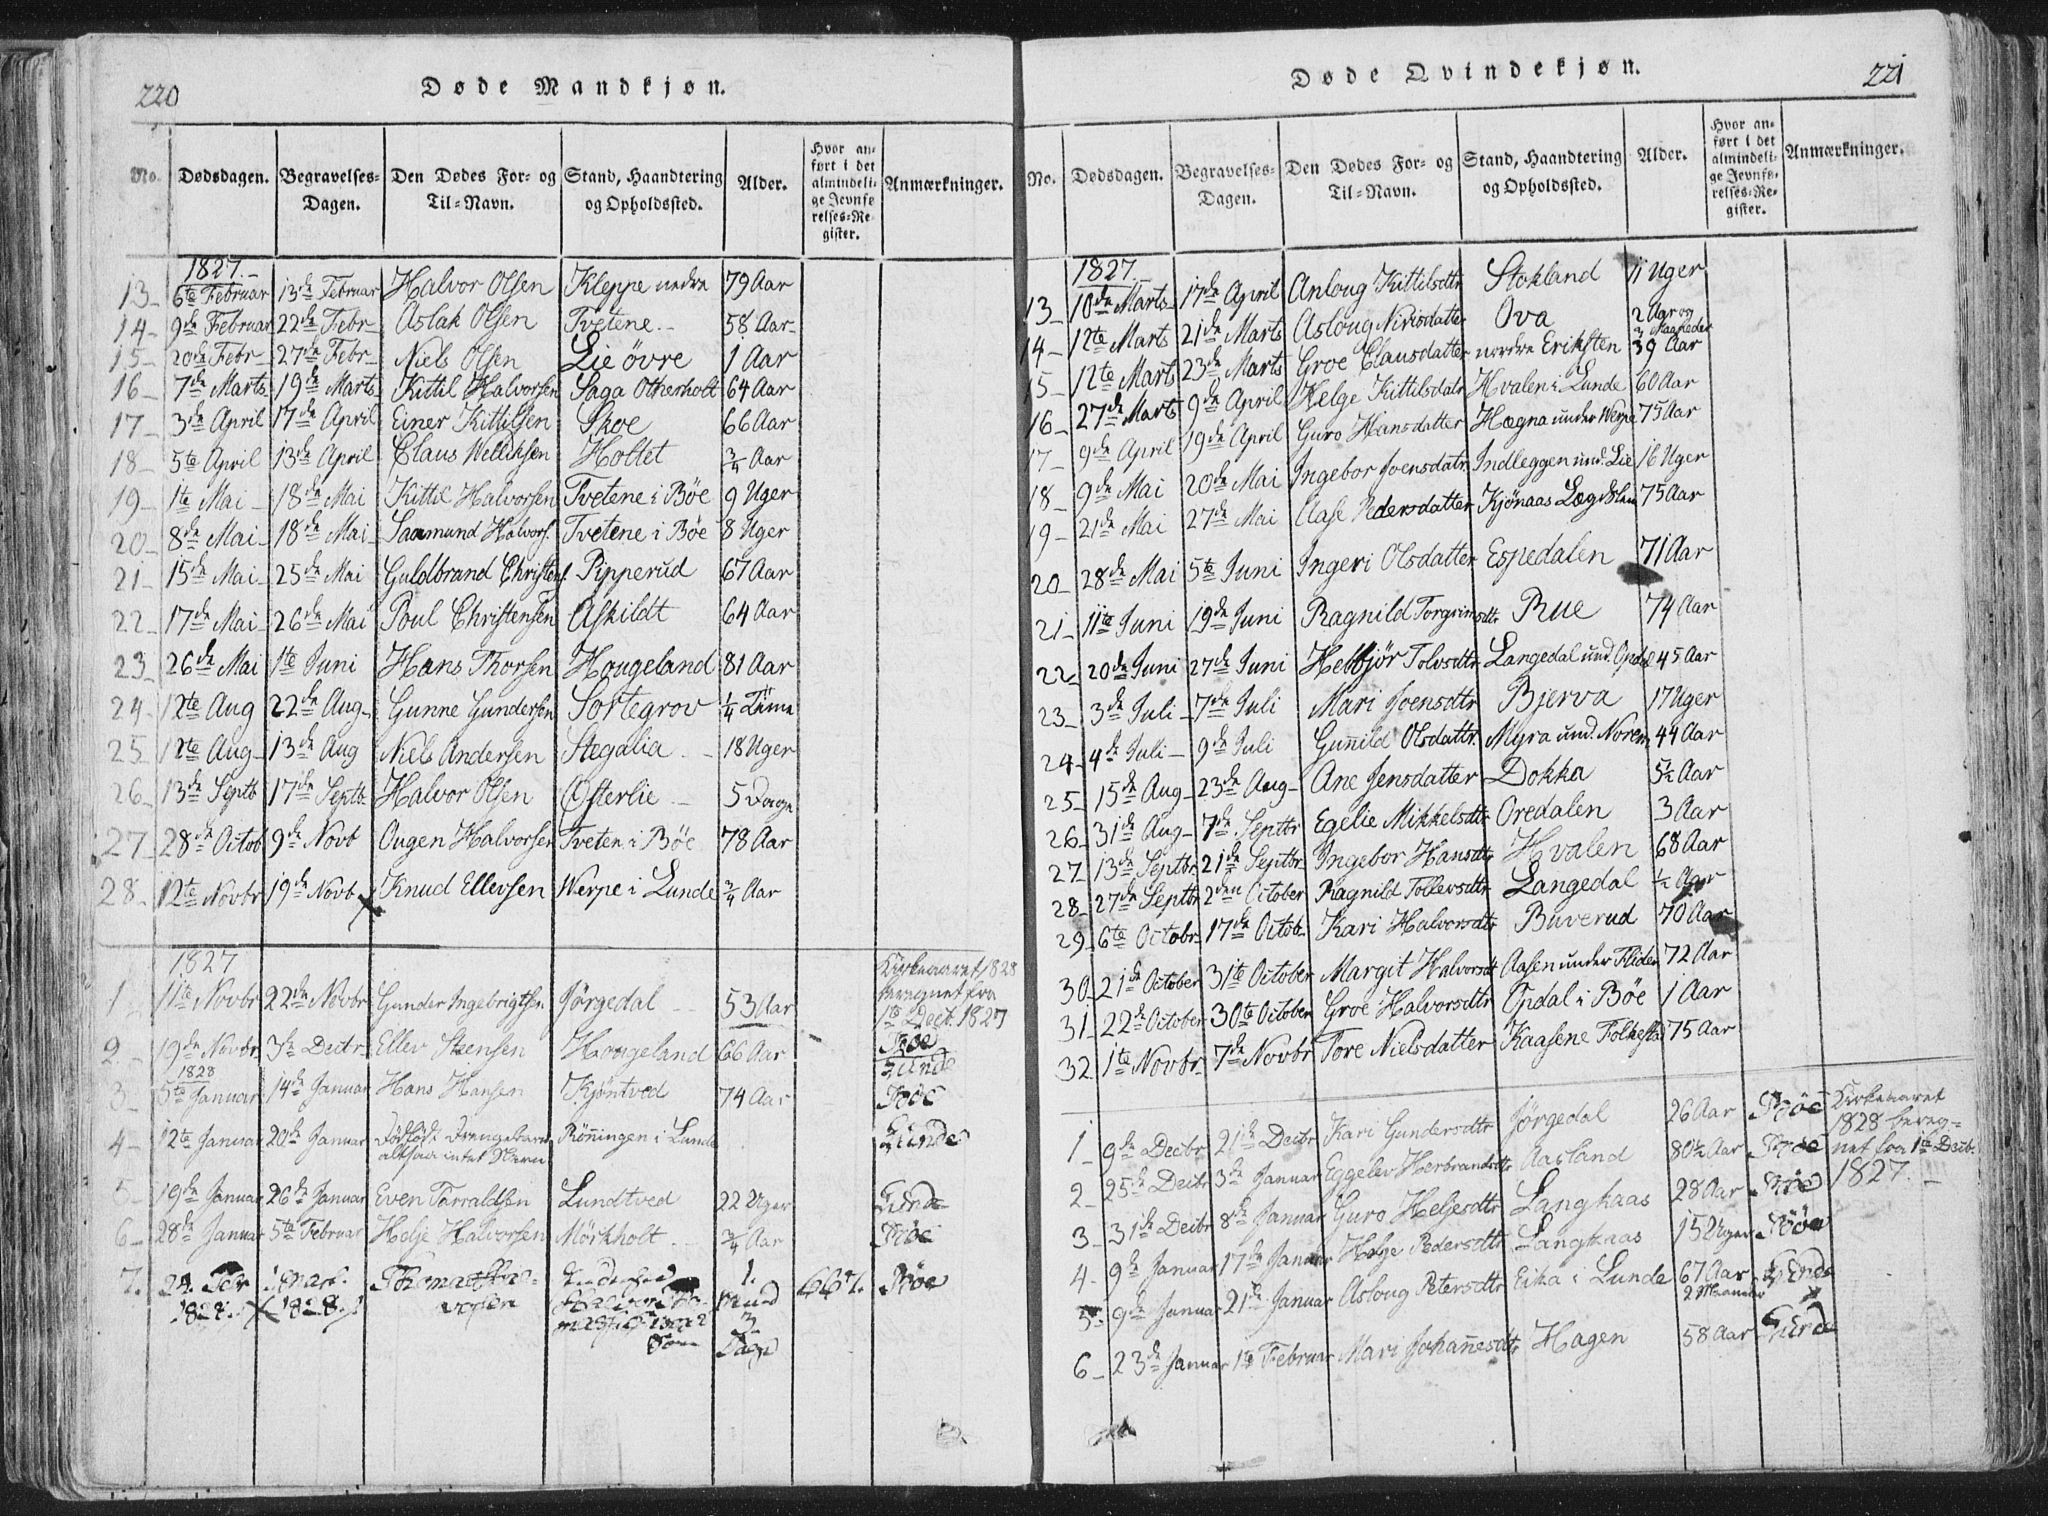 220
Døde Mandkjøn.
No. Dødsdagen. Begravelses-Dagen. Den Dødes For- og Til-Navn. Stand, Haandtering og Opholdssted. Alder. Hvor anført i det almindelige Jevnførelses-Register. Anmærkninger.
1827.
13 6te Februar 13de Februar Halvor Olsen Kleppe nedre 79 Aar
14 9de Februar 22de Febr Aslak Olsen Tvetene 58 Aar
15 20de Febr 27de Febr Niels Olsen Lie övre 1 Aar
16 7de Marts 19de Marts Kittil Halvorsen Saga Otherholt 64 Aar
17 3de April 17de April Einer Kittilsen Skoe 66 Aar
18 5te April 13de April Claus Welliksen Holtet 3/4 Aar
19 1te Mai 18de Mai Kittil Halvorsen Tvetene i Böe 9 Uger
20 8de Mai 18de Mai Saamund Halvors. Tvetene i Böe 8 Uger
21 15de Mai 25de Mai Guldbrand Christens. Pipperud 67 Aar
22 17de Mai 26de Mai Poul Christensen Askildt 64 Aar
23 26de Mai 1te Juni Hans Thorsen Hougeland 81 Aar
24 12te Aug 22de Aug Gunne Gundersen Sortegrov 1/4 Time
25 12te Aug 13de Aug Niels Andersen Stegalia 18 Uger
26 13de Septb 17de Septb Halvor Olsen Østerlie 5 Dage
27 28de Octob 9de Novb Ougen Halvorsen Tveten i Böe 78 Aar
28 12te Novbr 19de Novb Knud Ellevsen Werpe i Lunde 3/4 Aar
1827
Kirkeaaret 1828 beregnet fra 1te Decb. 1827
1 11te Novbr 22de Novbr Gunder Ingebrigtsen Jørgedal 53 Aar Böe
2 19de Novbr 3de Decbr Ellev Steensen Hougeland 66 Aar Lunde
1828
3 5te Januar 14de Januar Hans Hansen Kjöntved 74 Aar Böe
4 12te Januar 20de Januar Dödfödt Drengebarn altsaa intet Navn Rönningen i Lunde Lunde
5 19de Januar 26de Januar Even Tarraldsen Lundtved 22 Uger Lunde
6 28de Januar 5te Februar Helje Halvorsen Mörkholt 3/4 Aar Böe
7. 1828. 1828. 1. 3 Dage 667. Böe
221
Døde Qvindekjøn.
No. Dødsdagen. Begravelses-Dagen. Den Dødes For- og Til-Navn. Stand, Haandtering og Opholdssted. Alder. Hvor anført i det almindelige Jevnførelses-Register. Anmærkninger.
1827.
13 10de Marts 17de April Anloug Kittilsdtr Stokland 11 Uger
14 12te Marts 21de Marts Asloug Nirisdatter Ova 2 Aar og 3 Maaneder
15 12te Marts 23de Marts Groe Clausdatter nordre Eriksten 39 Aar
16 27de Marts 9de April Helge Kittilsdatr Hvalen i Lunde 60 Aar
17 9de April 19de April Guro Hansdatter Hægna under Werpe 75 Aar
18 9de Mai 20de Mai Ingebor Joensdatr Indleggen und. Lie 16 Uger
19 21de Mai 27de Mai Aase Pedersdatter Kjönaas Lægdslem 75 Aar
20 28de Mai 5te Juni Ingeri Olsdatter Espedalen 71 Aar
21 11te Juni 19de Juni Ragnild Torgrimsdtr Rue 74 Aar
22 20de Juni 27de Juni Hebbjör Tolvsdtr Langedal und. Opdal 45 Aar
23 3de Juli 7de Juli Mari Joensdtr Bjerva 17 Uger
24 4de Juli 9de Juli Gunnild Olsdattr. Myra und. Norem 44 Aar
25 15de Aug 23de Aug Ane Jensdatter Dokka 5 1/2 Aar
26 31de Aug 7de Septbr Egelie Mikkelsdtr Oredalen 3 Aar
27 13de Septbr 21de Septbr Ingebor Hansdtr Hvalen 68 Aar
28 27de Septbr 2den October Ragnild Tollevsdtr Langedal 1/2 Aar
29 6te Octobr 17de Octob Kari Halvorsdtr Buverud 70 Aar
30 21de October 31te October Margit Halvorsdt Aasen under Flider 72 Aar
31 22de October 30te October Groe Halvorsdtr Opdal i Böe 1 Aar
32 1te Novbr 7de Novbr Tore Nielsdatter Kaasene Folkestad 75 Aar
Kirkeaaret 1828 beregnet fra 1te Decbr. 1827.
1 9de Decbr 21de Decbr Kari Gundersdtr Jørgedal 26 Aar Böe
2 25de Decbr 3de Januar Eggelev Herbrandsdtr Aasland 80 1/2 Aar Böe
3 31de Decbr 8de Januar Guro Heljesdtr Langkaas 28 Aar Böe
4 9de Januar 17de Januar Helge Pedersdtr Langkaas 15 Uger Böe
5 9de Januar 21de Januar Asloug Petersdtr Eika i Lunde 67 Aar 2 Maaneder Lunde
6 23de Januar 1te Februar Mari Johannesdtr Hagen 58 Aar Lunde